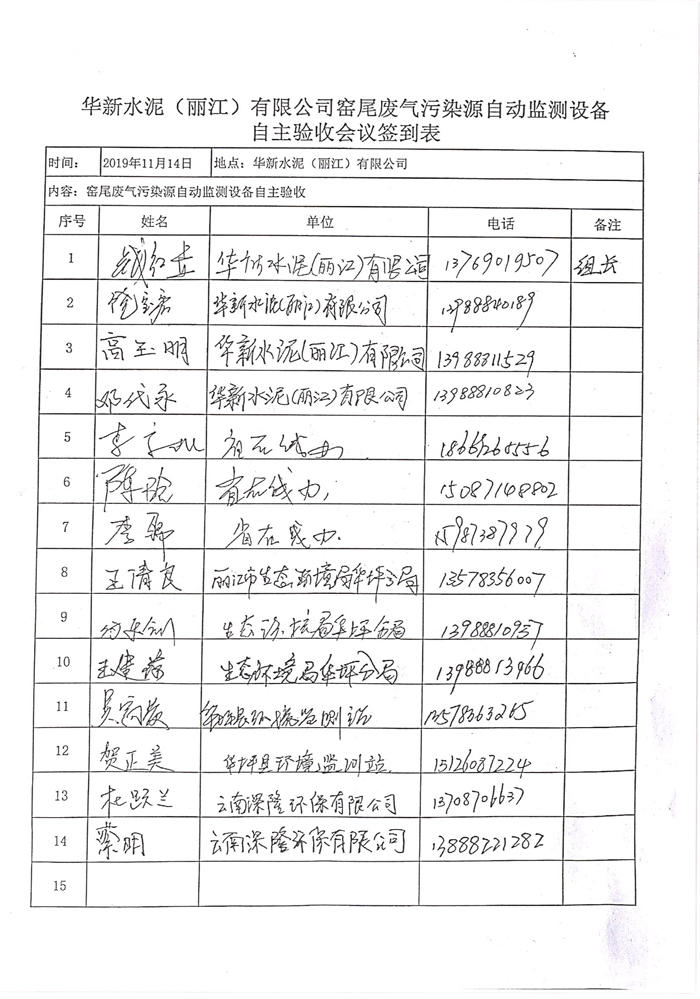 华新水泥（丽江）有限公司窑尾废气污染源自动监测设备
自主验收会议签到表
时间： 2019年11月14日 地点：华新水泥（丽江）有限公司
内容：窑尾废气污染源自动监测设备自主验收
序号 姓名 单位 电话 备注
1 华新水泥(丽江)有限公司 13769019507 组长
2 华新水泥(丽江)有限公司 13988840189
3 高玉明 华新水泥(丽江)有限公司 13988811529
4 邓代永 华新水泥(丽江)有限公司 13988810823
5 省在线办
6 陈玲 省在线办 15087148802
7 李骊 省在线办 15987387979
8 王清良 丽江市生态环境局华坪分局 13578356007
9 生态环境局华坪分局 13988810957
10 生态环境局华坪分局 13988813966
11 环境监测站 13578363265
12 贺正美 华坪县环境监测站 15126087224
13 杜跃兰 云南深隆环保有限公司 13708706637
14 蔡明 云南深隆环保有限公司 13888221282
15